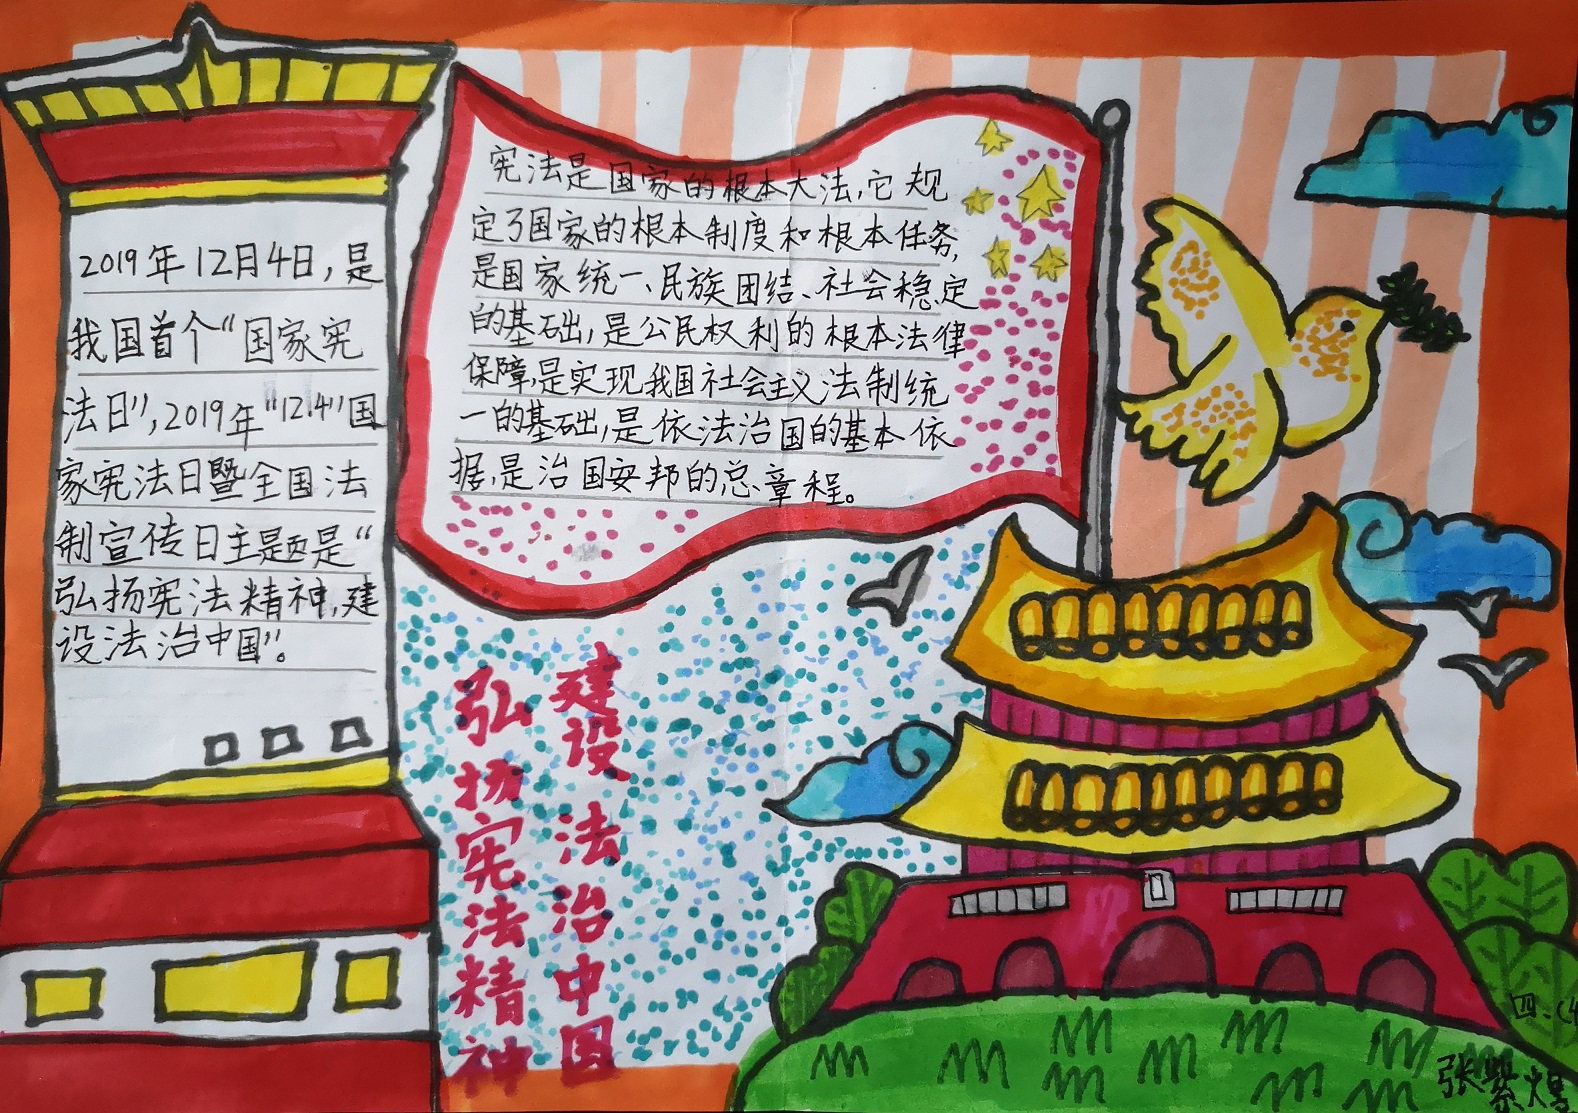 2019年12月4日,是
我国首个“国家宪
法日”,2019年“12.4”国
家宪法日暨全国法
制宣传日主题是“
弘扬宪法精神,建
设法治中国”。
宪法是国家的根本大法,它规
定了国家的根本制度和根本任务,
是国家统一、民族团结、社会稳定
的基础,是公民权利的根本法律
保障,是实现我国社会主义法制统
一的基础,是依法治国的基本依
据,是治国安邦的总章程。
弘扬宪法精神
建设法治中国
四.(4
张紫煜